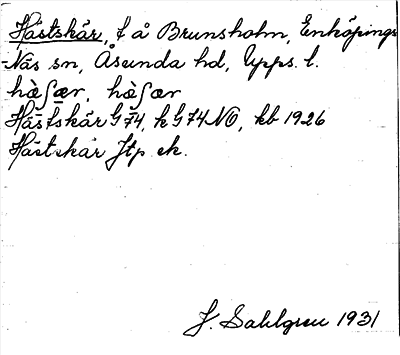 Hästskär, f å Brunsholm, Enköpings
-Näs sn, Åsunda hd, Upps. l.
hὰʃær, hὰʃær
Hästskär G 74, k G 74 NO, kb 1926
Hästskär Jtp ek.
J. Sahlgren 1931